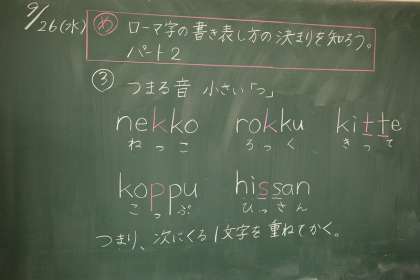 9/26(水)
め ローマ字の書き表し方の決まりを知ろう。
パート2
③ つまる音 小さい「っ」
nekko rokku kitte
ねっこ ろっく きって
koppu hissan
こっぷ ひっさん
つまり、次にくる1文字を重ねてかく。